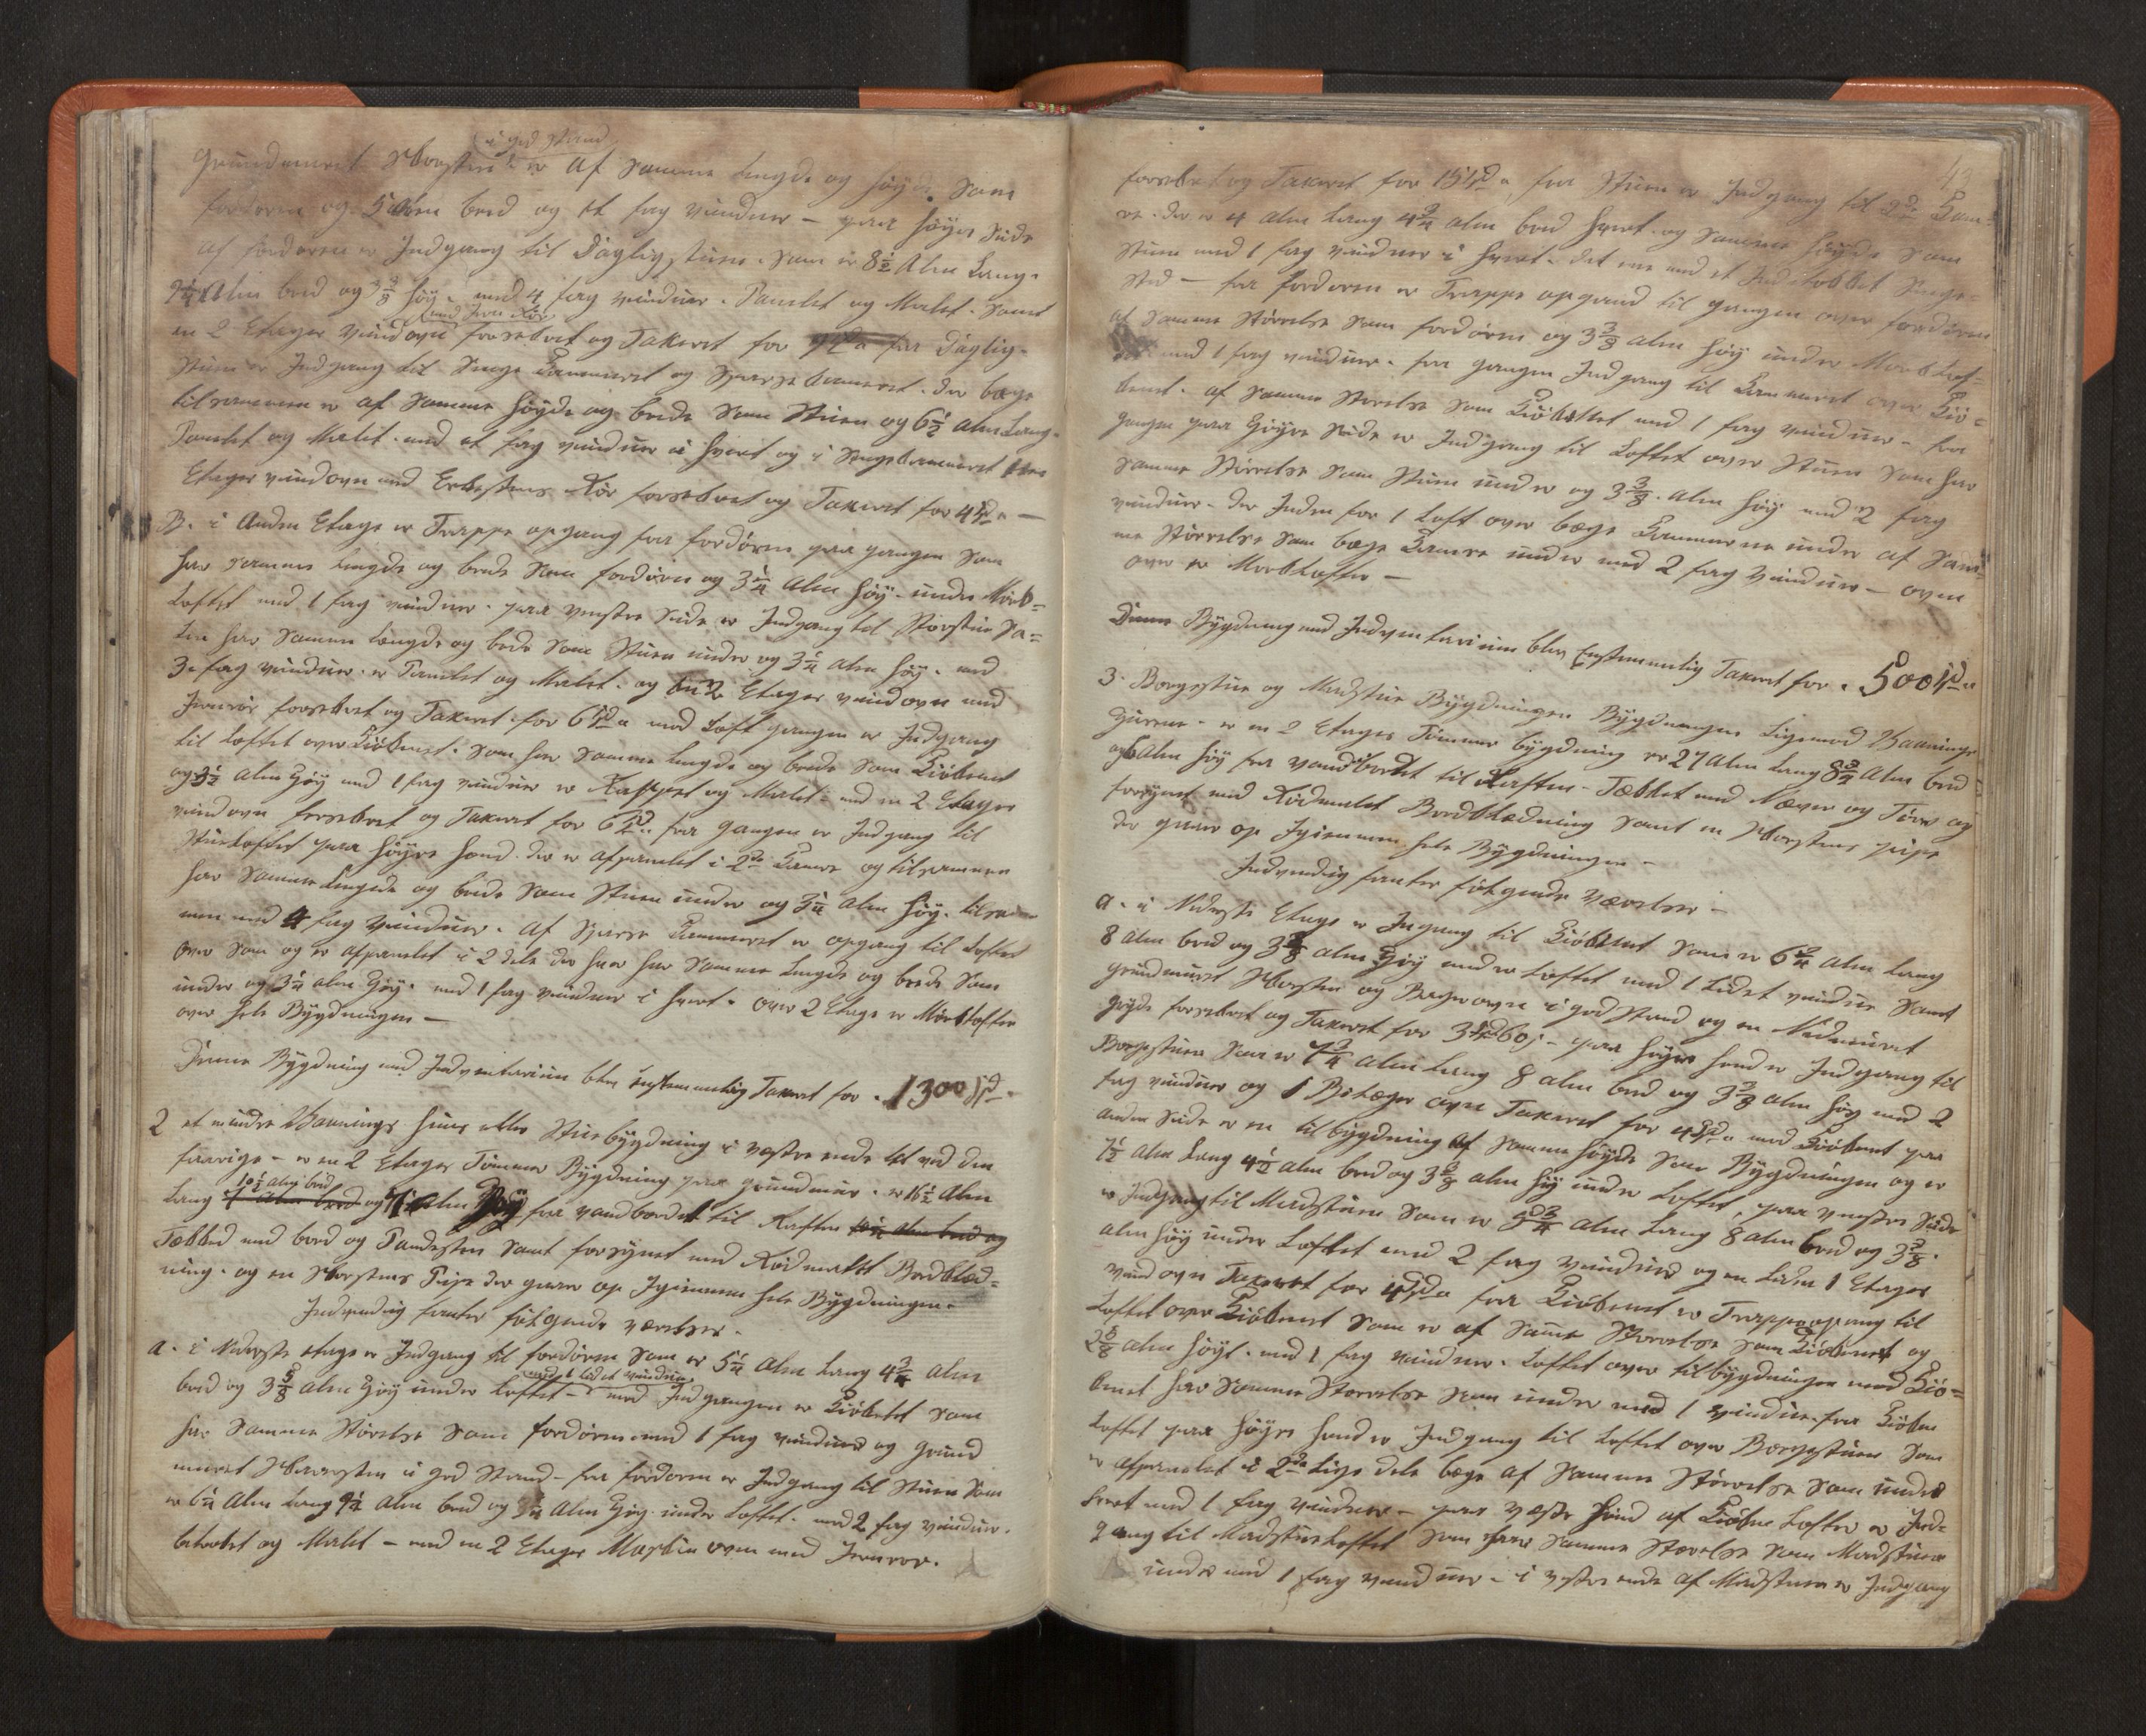 i god Stand
Grundmuret Skorsteen er af Samme Lengde og høyde Som
fordøren og 5 alen bred og et fag vinduer – paa høyre Side
af fordøren er Indgang til Dagligstuen. Som er 8½ Alen Lang.
9¼ Alen bred og 3⅜ høy. med 4 fag vinduer. Panelet og Malet. Samt
med Jern Rør
en 2 Etages vindovn forsebret og Taxeret for fra Daglig-
Stuen er Indgang til Senge Kammeret og Spiise kameret. der begge
tilsammen er af Samme høyde og brede Som Stuen og 6½ Alen Lang.
Panelet og Malet. med et fag vinduer i hvert og i Sengekammeret
Etages vindovn med Rør forsebret og Taxeret for 4 Spd. –
B. i Anden Etage er Trappe opgang fra fordøren paa gangen Som
har samme Lengde og brede Som fordøren og 3¼ Alen høy. under Mørk-
Loftet med 1 fag vinduer. paa venstre Side er Indgang til Storstue Sa-
len har Samme Længde og brede Som Stuen under og 3¼ Alen høy. med
3e fag vinduer. er Panelet og Malet. og 2 Etages vindovn med
Jernrør forsebret og Taxeret for 6 Spd. mod Loft gangen er Indgang
til Loftet over Kiøkenet. Som har Samme Lengde og brede Som Kiøkenet
og 3¼ Alen høy med 1 fag vinduer er og Malet. med en 2 Etages
vindovn forsebret og Taxeret for 6 Spd. fra gangen er Indgang til
Stueloftet paa høyre haand. der er afpanelet i 2de Kamre og tilsammen
har Samme Lengde og brede Som Stuen under og 3¼ Alen høy. tilsam-
men med 4 fag vinduer. Af Spiise Kammeret er opgang til Loftet
over Som og er afpanelet i 2 dele der hver har Samme Lengde og brede Som
under og 3¼ alen høy. med 1 fag vinduer i hvert. over 2 Etage er Mørkloftter
over hele Bygdningen –
Denne Bygdning med Indventarium blev Enstemmelig Taxeret for. 1300 Spd.
2 et mindre Vaanings huus eller Stuebygdning i vestre ende tet ved den
forrige – er en 2 Etages Tømmer Bygdning paa grundmuur. er 16½ Alen
10½ alen bred
Lang og Alen høy fra vandbordet til Raften
Tækked med bord og Pandesten Samt forsynet med Rødmalet Bordklæd-
ning. og en Skorsteens Pibe der gaaer op Igiennem hele Bygdningen.
Indvendig fantes følgende værelser.
a. i Nederste etage er Indgang til fordøren Som er 5¼ Alen Lang 4¾ Alen
med 1 Lidet vindue
bred og 3⅝ Alen høy under Loftet – mod Indgangen er Kiøkenet Som
har Samme Størelse Som fordøren med 1 fag vinduer og Grund
muret Skorsteen i god Stand – fra fordøren er Indgang til Stuen Som
er 6¼ Alen Lang 9¼ Alen bred og Alen høy under Loftet. med 2 fag vinduer.
betrekket og Malet – med en 2 Etages ovn med Jernrør.
43
forsebret og Taxeret for 15 Spd. fra Stuen er Indgang til 2de Kam-
re. der er 4 Alen Lang 4¾ alen bred hvert. og Samme høyde Som
Stuen med 1 fag vinduer i hvert. det ene med et Indelokket Senge-
Sted – fra fordøren er Trappe opgang til gangen over fordøren
af Samme Størrelse Som fordøren og 3⅜ Alen høy under Mørklof-
tet med 1 fag vinduer. fra gangen Indgang til Kammeret over Kiø-
kenet. af Samme Størelse Som Kiøkenet med 1 fag vinduer – fra
gangen paa høyre Side er Indgang til Loftet over Stuen Som har
Samme Størrelse Som Stuen under og 3⅜. Alen høy med 2 fag
vinduer. der Inden for 1 Loft over begge Kammerne under af Sam-
me Størrelse Som begge Kamre under med 2 fag vinduer – oven
over er Mørkloftter –
Denne Bygdning med Indventarium blev Enstemmelig Taxeret for. 500 Spd.
3. Borgestue og Madstue Bygdningen Bygdningen Ligemod Vaanings
huusene. er en 2 Etages Tømmer bygdning er 27 Alen Lang 8¾ Alen bred
og 6 Alen høy fra vandbordet til Raften – Tækket med Næver og Torv og
forsynet med Rødmalet Bordklædning Samt en Skorsteens pibe
der gaaer op Igiennem hele Bygdningen –
Indvendig fantes følgende Værelser –
a. i Nederste Etage er Ingang til Kiøkenet Som er 6¾ Alen Lang
8 Alen bred og 3⅜ alen høy under Loftet med 1 Lidet vindue Samt
grundmuret Skorsteen og Bagerovn i god Stand og en Nedmuret
gryde forsebret og Taxeret for 3 Spd 60 s – paa høyre haand er Indgang til
Borgestuen Som er 7¾ Alen Lang 8 alen bred og 3⅜ alen høy med 2
fag vinduer og 1 Bilægger ovn Taxeret for 4 Spd. mod Kiøkenet paa
anden Side er en tilbygdning af Samme høyde Som Bygdningen og er
7½ Alen Lang 4½ Alen bred og 3⅜ alen høy under Loftet, paa venstre Side
er Indgang til Madstuen Som er Alen Lang 8 alen bred og 3⅜.
alen høy under Loftet med 2 fag vinduer og en Liden 1 Etages
vindovn Taxeret for 4 Spd. fra Kiøkenet er Trappeopgang til
Loftet over Kiøkenet Som er af Samme Størrelse Som Kiøkenet og
2⅝ alen høyt. med 1 fag vinduer. Loftet over tilbygdningen mod Kiø-
kenet har Samme Størrelse Som under med 1 vindue. fra Kiøken
Loftet paa høyre haand er Indgang til Loftet over Borgestuen Som
er afpanelet i 2de Lige dele begge af Samme Størrelse Som under
hvert med 1 fag vinduer – paa venstre haand af Kiøken Loftet er Ind-
gang til Madstueloftet Som har Samme Størrelse Som Madstuen
under med 1 fag vinduer – i vestre ende af Madstuen er Indgang